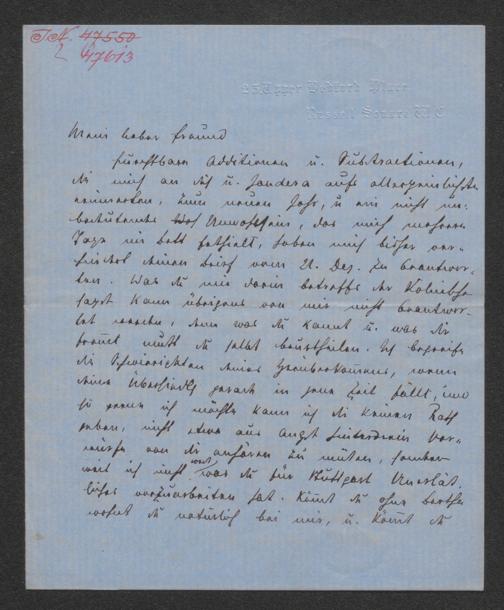 I.N. 47550
47613
25, Upper Bedford Place
Russell Square W.C.
Mein lieber Freund
Furchtbare Additionen u. Subtractionen,
die mich an dich u. Sandera aufs allerpeinlichste
erinnerten, zum neuen Jahr, u. ein nicht un-
bedeutendes Unwohlsein, das mich mehrere
Tage im Bett festhielt, haben mich bisher ver-
hindert deinen Brief vom 21. Dez. zu beantwor-
ten. Was du mir darin betreffs der
sagst kann übrigens von mir nicht beantwor-
tet werden, denn was du kannst u. was dir
frommt mußt du selbst beurtheilen. Ich begreife
die Schwierigkeiten deines, wenn
deine gerade in jene Zeit fällt, und
so gerne ich möchte kann ich dir keinen Rath
geben, nicht etwa aus Angst hinterdrein Vor-
würfe von dir anhören zu müssen, sondern
weil ich nicht weiß was du für Stuttgart Unerläß-
liches vorzuarbeiten hast. Kömmst du ohne Bertha
wohnst du natürlich bei mir, u. kömmst du